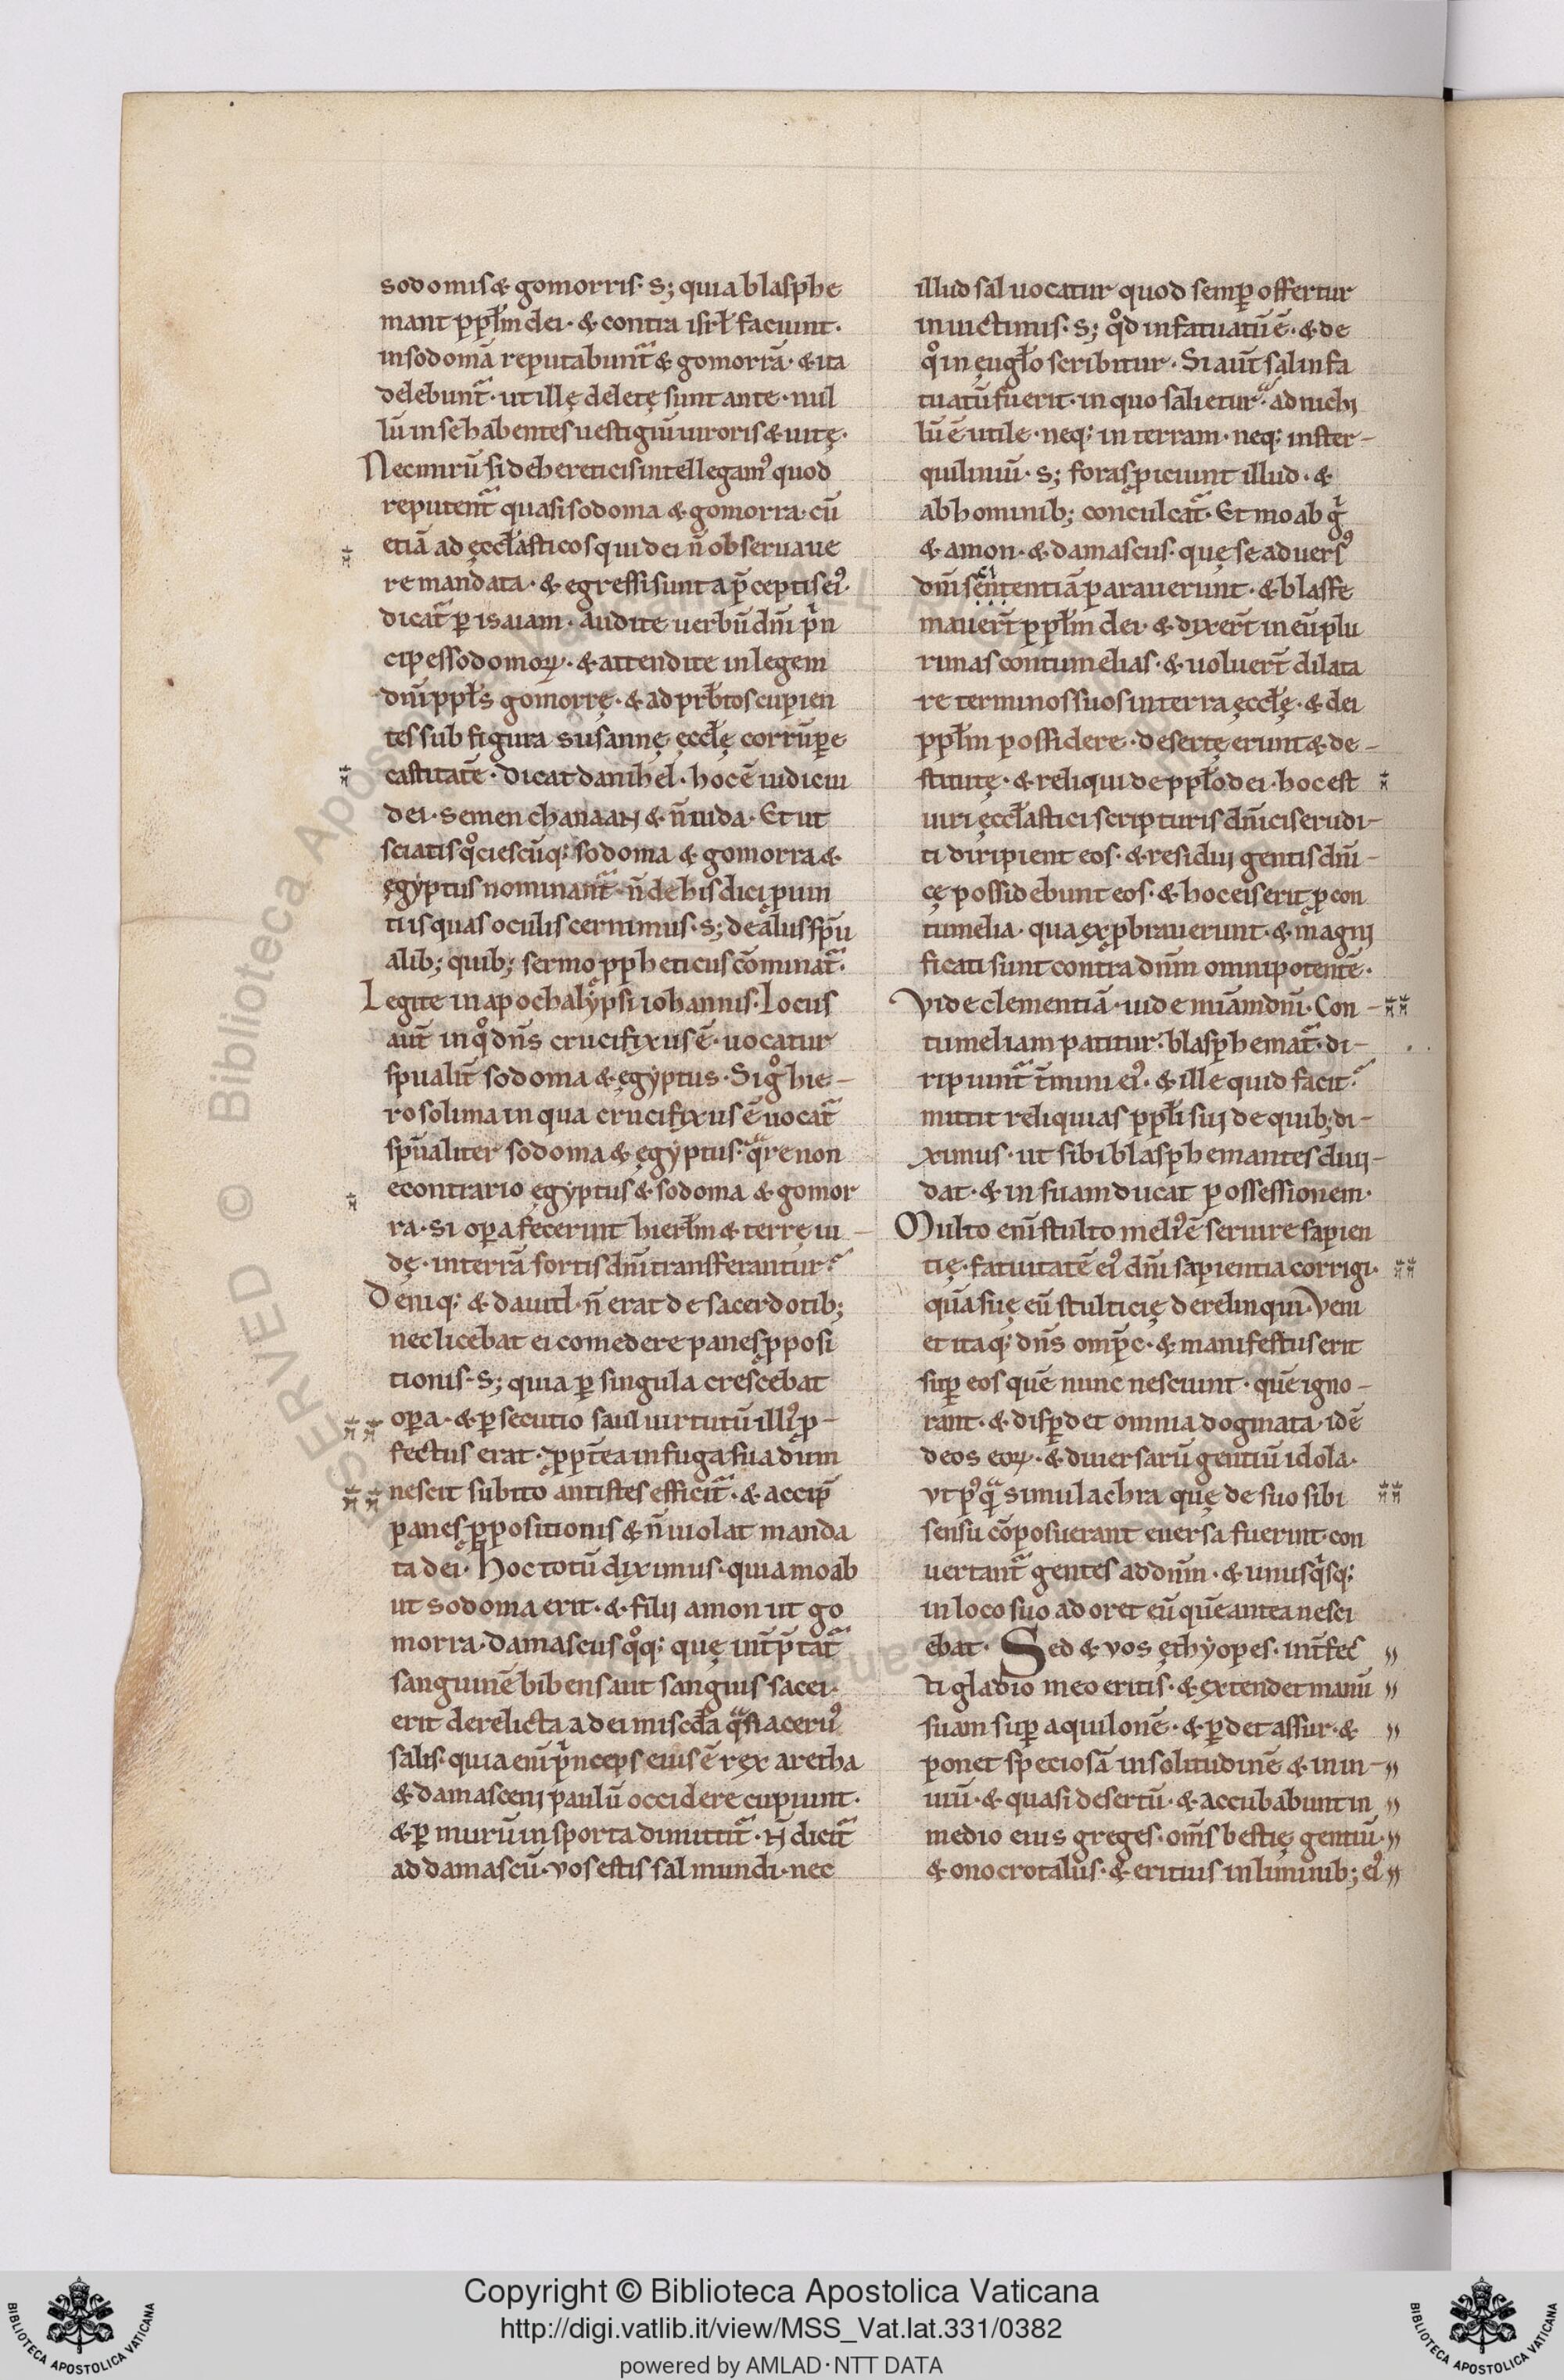 sodomis & gomorris· S; quia blasphe
mant ppl̄m dei· & contra isrl̄ faciunt·
in sodomā reputabunt᷒ & gomorrā· & ita
delebunt᷒· ut illę deletę sunt ante· nul
lū in se habentes uestigiū uiroris & uitę·
Nec mirū si de hereticis intellegam᷒ quod
reputent᷒ quasi sodoma & gomorra· cū
etiā ad ęccl̄asticos qui dei n̄ obseruaue
re mandata· & egressi sunt a p̄ceptis ei᷒·
dicat᷒ ꝑ isaiam· Audite uerbū dn̄i pⁱn
cipes sodomoꝝ· & attendite in legem
dn̄i ppl̄s gomorrę· & ad prb̄tos cupien
tes sub figura susannę ęccl̄ę corrūꝑe
castitatē· dicat danihel· hoc ē iudiciū
dei· semen chanaan & n̄ iuda· Et ut
sciatis qͦciescūq; sodoma & gomorra &
ęgyptus nominant᷒· n̄ de his dici ꝓuin
tiis quas oculis cernimus· S; de alīis spū
alib; quib; sermo ꝓpheticus cōminat᷒·
Legite in apochalypsi iohannis· Locus
aut̄ in qͦ dn̄s crucifixus ē· uocatur
spualit̄ sodoma & ęgyptus· Si gͦ hie-
rosolima in qua crucifixus ē uocat᷒
spūaliter sodoma & ęgyptus· qͣre non
econtrario ęgyptus & sodoma & gomor
ra· si oꝑa fecerint hierl̄m & terrę iu-
dę· in terrā sortis dn̄i transferantur?
Deniq; & dauid· n̄ erat de sacerdotib;
nec licebat ei comedere panes ꝓposi
tionis· S; quia ꝑ singula crescebat
oꝑa· & ꝑsecutio saul uirtutū illi᷒ ꝓ-
fectus erat· ꝓpt̄ea in fuga sua dum
nescit subito antistes efficit᷒· & accip̄
panes ꝓpositionis & n̄ uiolat manda
ta dei· Hoc totū diximus· quia moab
ut sodoma erit· & filij amon ut go
morra· damascus qͦq; quę int̄p̄tat᷒
sanguinē bibens aut sanguis sacci·
erit derelicta a dei misc̄dīa qͣsi aceru᷒
salis· quia eni pⁱnceps eius ē rex aretha
& damasceni paulū occidere cupiunt·
& ꝑ murū in sporta dimittit᷒· N̄ dicit᷒
ad damascū· vos estis sal mundi· nec
illud sal uocatur quod semꝑ offertur
in uictimis· S; qͦd infatuatū ē· & de
qͦ in ęugl̄o scribitur· Si aut̄ sal infa
tuatū fuerit· in quo salietur? ad nichi
lū ē utile· neq; in terram· neq; in ster-
quiliniū· S; foras ꝓiciunt illud· &
ab hominib; conculcat᷒· Et moab gⁱ
& amon· & damascus· quę se aduers᷒
dn̄i sententiā parauerunt· & blasfe
mauer̄t ppl̄m dei· & dixer̄t in eū plu
rimas contumelias· & uoluer̄t dilata
re terminos suos in terra ęccl̄ę· & dei
ppl̄m possidere· desertę erunt & de-
stitutę· & reliqui de ppl̄o dei· hoc est
uiri ęccl̄astici scripturis dn̄icis erudi-
ti diripient eos· & residui gentis dn̄i-
cę possidebunt eos· & hoc eis erit ꝓ con
tumelia· qua exꝓbrauerunt· & magni
ficati sunt contra dn̄m omnipotentē·
Vide clementiā· uide mīam dn̄i· Con-
tumeliam patitur· blasphemat᷒· di-
ripiunt᷒ t̄mini ei᷒· & ille quid facit?
mittit reliquias ppl̄i sui de quib; di-
ximus· ut sibi blasphemantes diui-
dat· & in suam ducat possessionem·
Multo eni stulto meli᷒ ē seruire sapien
tię· fatuitatē ei᷒ dn̄i sapientia corrigi·
quā suę eū stulticię derelinqui· Veni
et itaq; dn̄s omp̄c· & manifestus erit
suꝑ eos quē nunc nesciunt· quē igno-
rant· & disꝑdet omnia dogmata· idē
deos eoꝝ· & diuersarū gentiū idola·
vt p᷒qͣ simulachra quę de suo sibi
sensu cōposuerant euersa fuerint· con
uertant᷒ gentes ad dn̄m· & unusqⁱsq;
in loco suo adoret eū quē antea nesci
ebat· Sed & vos ęthyopes· int̄fec
ti gladio meo eritis· & extendet manū
suam suꝑ aquilonē· & ꝑdet assur· &
ponet speciosā in solitudinē & in in-
uiū· & quasi desertū· & accubabunt in
medio eius greges· om̄s bestię gentiū·
& onocrotalus· & eritius in liminib; ei᷒
Copyright © Biblioteca Apostolica Vaticana
http://digi.vatlib.it/view/MSS_Vat.lat.331/0382
powered by AMLAD·NTT DATA